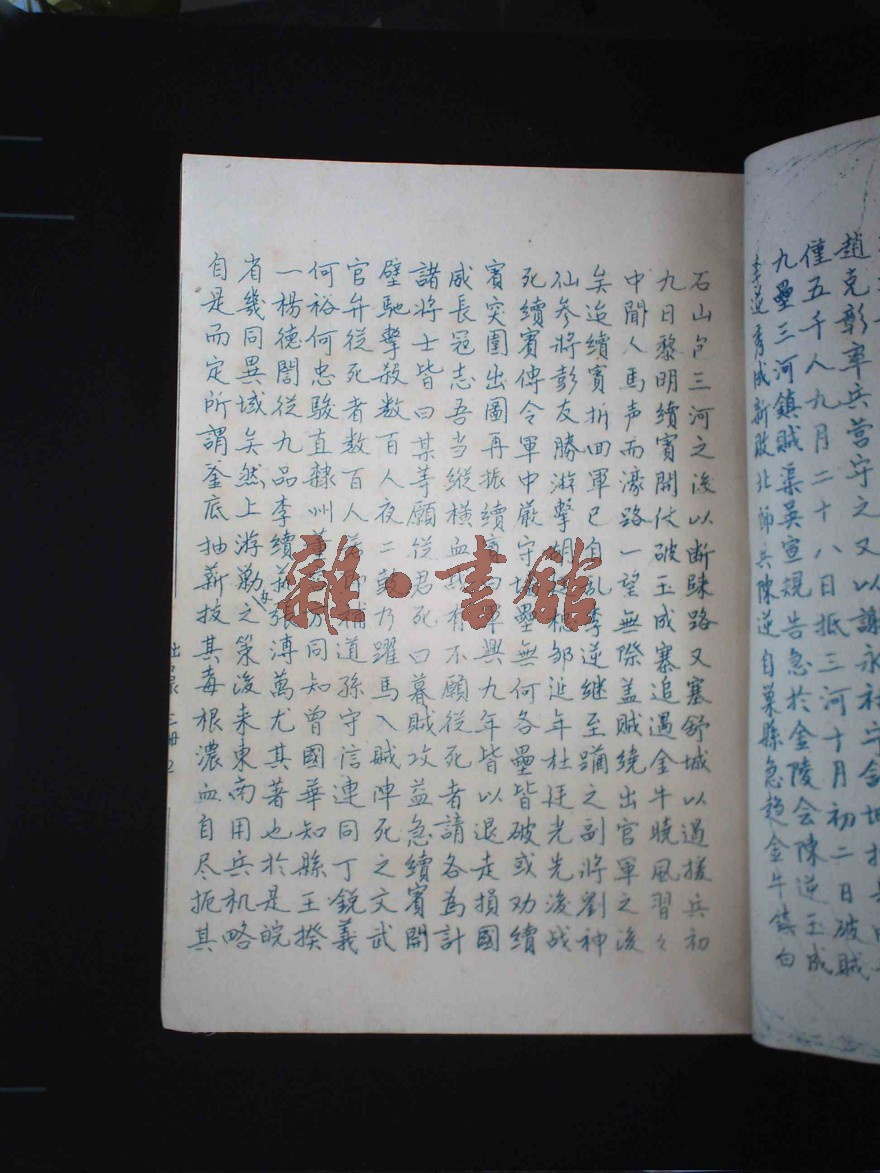 趙克彰率兵营守之又以謝永祜守舒城
僅五千人九月二十八日抵三河十月初二日破賊
九壘三河鎮賊渠吳宣規告急於金陵会陳逆玉成
李逆秀成新敗北師兵陳逆自巢縣急趋金牛鎮白
石山包三河之後以断賕路又塞舒城以遏援兵初
九日黎明續賓開仗破玉成寨追過金牛曉風習々
中聞人馬声而濠路一望無際盖賊繞出官軍之後
矣迨續賓折回軍已自乱李逆継至躡之副將劉神
仙参將彭友勝游擊胡穂鄒延年杜廷光先後战
死續賓傳令軍中嚴守壘無何各壘皆破或劝續
賓突圍出圖再振續賓曰軍興九年皆以退走損國
威長冦志吾当縦横血有不願從死者請各為計
諸將士皆曰某等願從君死曰暮賊攻益急續賓開
壁馳擊殺数百人夜二鼓乃躍馬入賊陣死之文武
官弁從死者数百人補道孫守信連同丁銳義
何裕何忠駿直隸州董同知曾國華知縣王揆
一楊德誾從九品李續張溥萬尤其著也於是皖
省幾同異域矣然上游勦之策後来東南用兵机略
自是而定所謂釜底抽薪技其毒根濃血自尽扼其
三冊
雜·書館